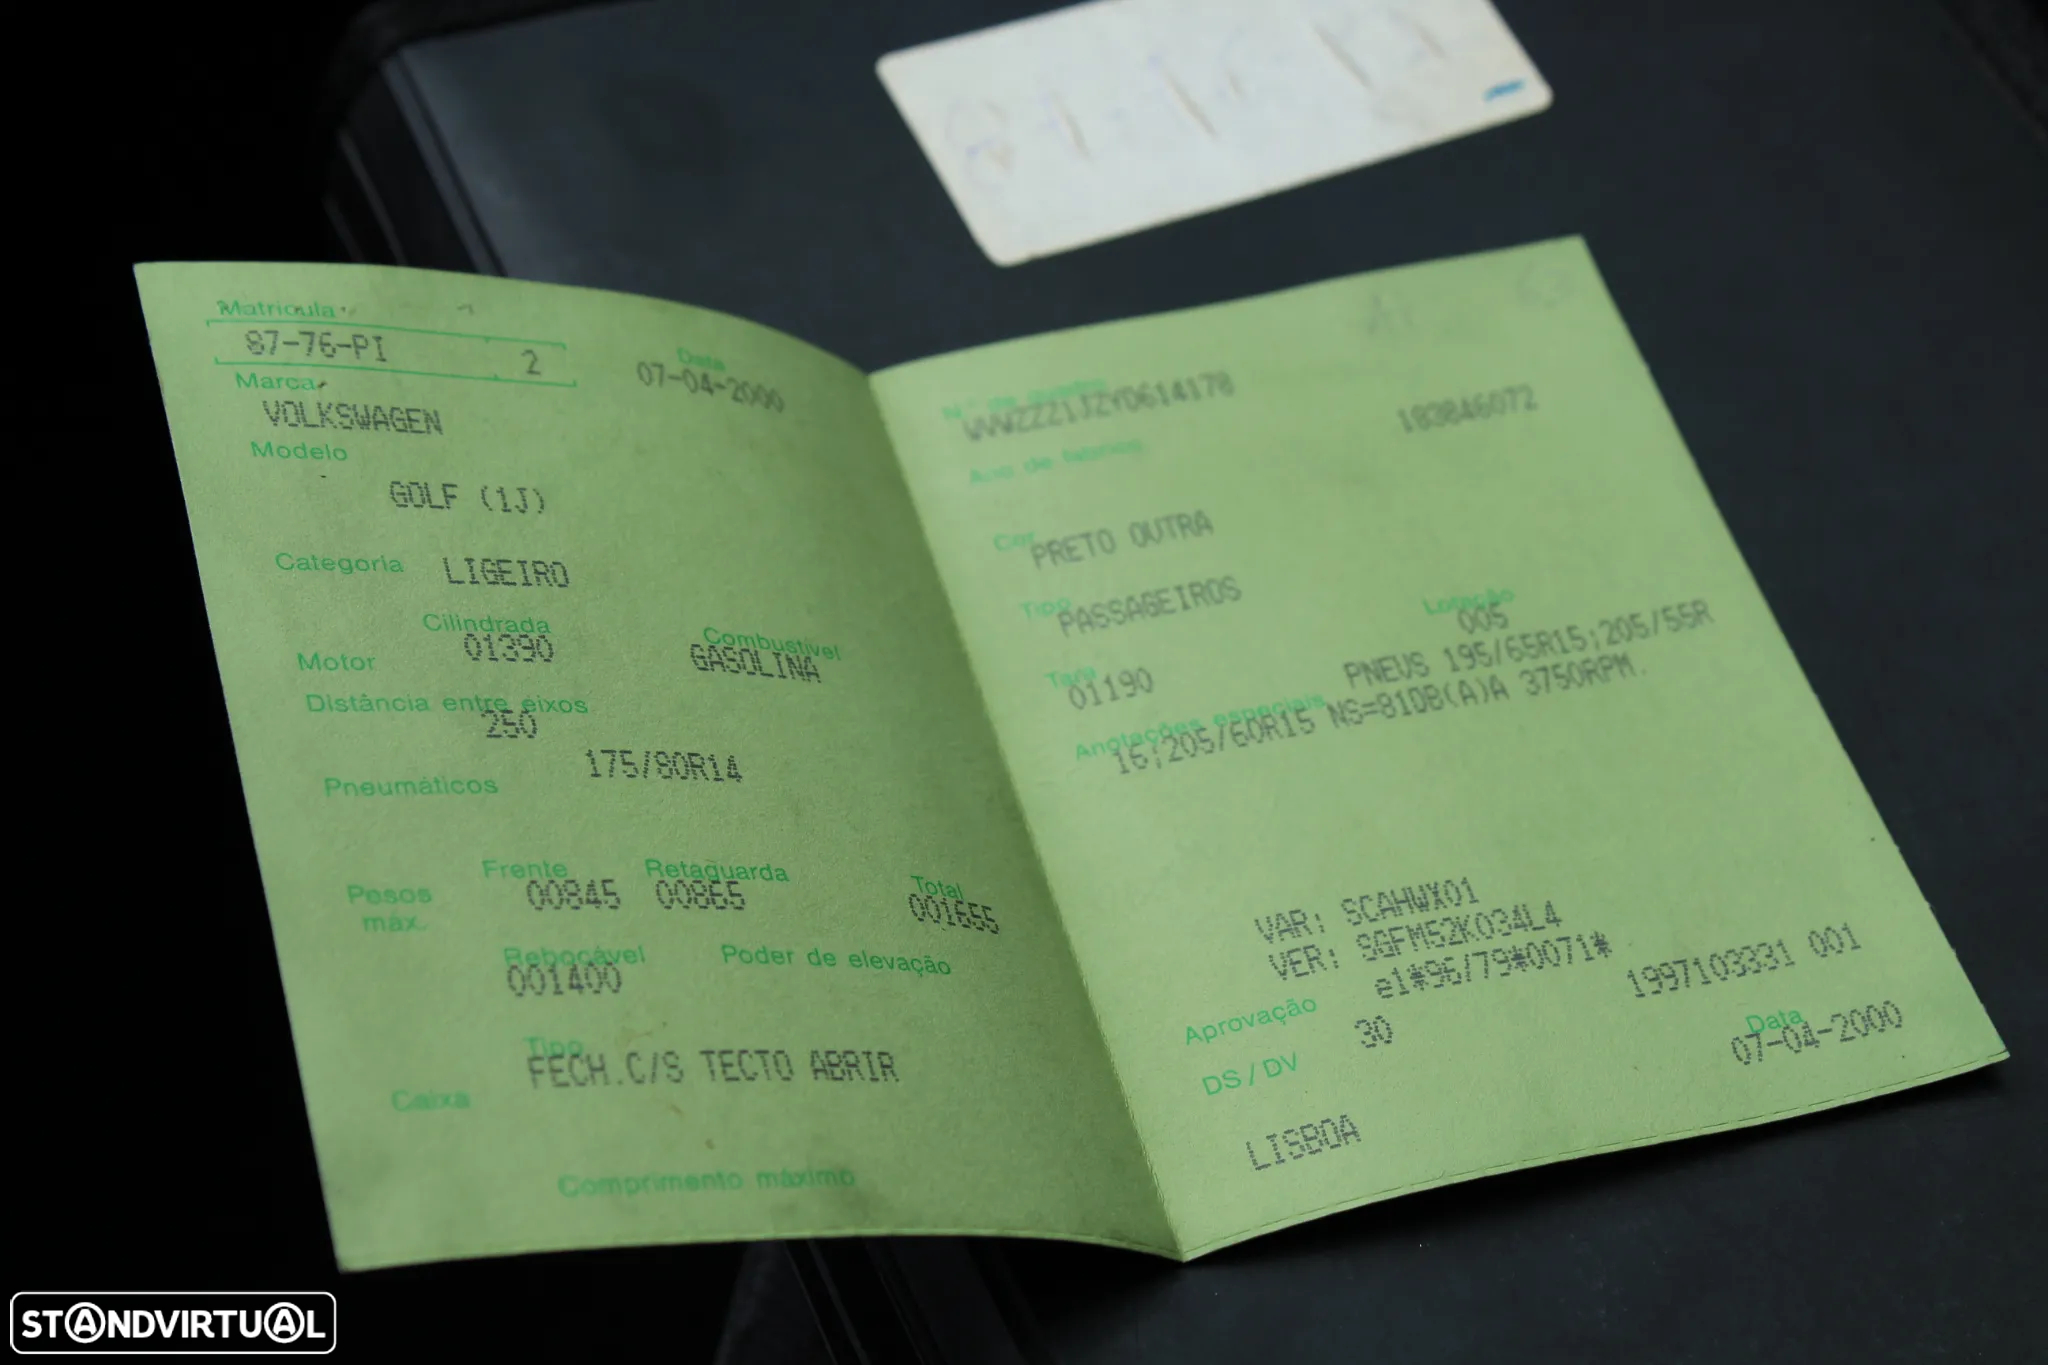 Matrícula
87-76-PI 2
Data
07-04-2000
Marca
VOLKSWAGEN
Modelo
GOLF (1J)
Categoria LIGEIRO
Motor
Cilindrada
01390
Combustível
GASOLINA
Distância entre eixos
250
Pneumáticos 175/80R14
Pesos máx.
Frente
00845
Retaguarda
00865
Total
001655
Rebocável
001400
Poder de elevação
Caixa
Tipo
FECH.C/S TECTO ABRIR
Comprimento máximo
N.º de quadro
WVWZZZ1JZYD614178
183846072
Ano de fabrico
Cor
PRETO OUTRA
Tipo
PASSAGEIROS
Lotação
005
Tara
01190
PNEUS 195/65R15;205/55R
Anotações especiais
16;205/60R15 NS=81DB(A)A 3750RPM.
VAR: SCAHWX01
VER: SGFM52K034L4
e1*96/79*0071*
Aprovação
1997103331 001
DS/DV
30
Data
07-04-2000
LISBOA
STANDVIRTUAL